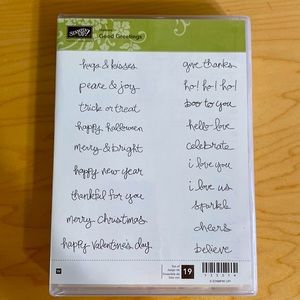 STAMPIN' UP!
Good Greetings
hugs & kisses
peace & joy
trick or treat
happy halloween
merry & bright
happy new year
thankful for you
merry Christmas
happy valentine's day
give thanks
ho! ho! ho!
boo to you
hello love
celebrate
i love you
i love us
sparkle
cheers
believe
Set of
19
© STAMPIN' UP!